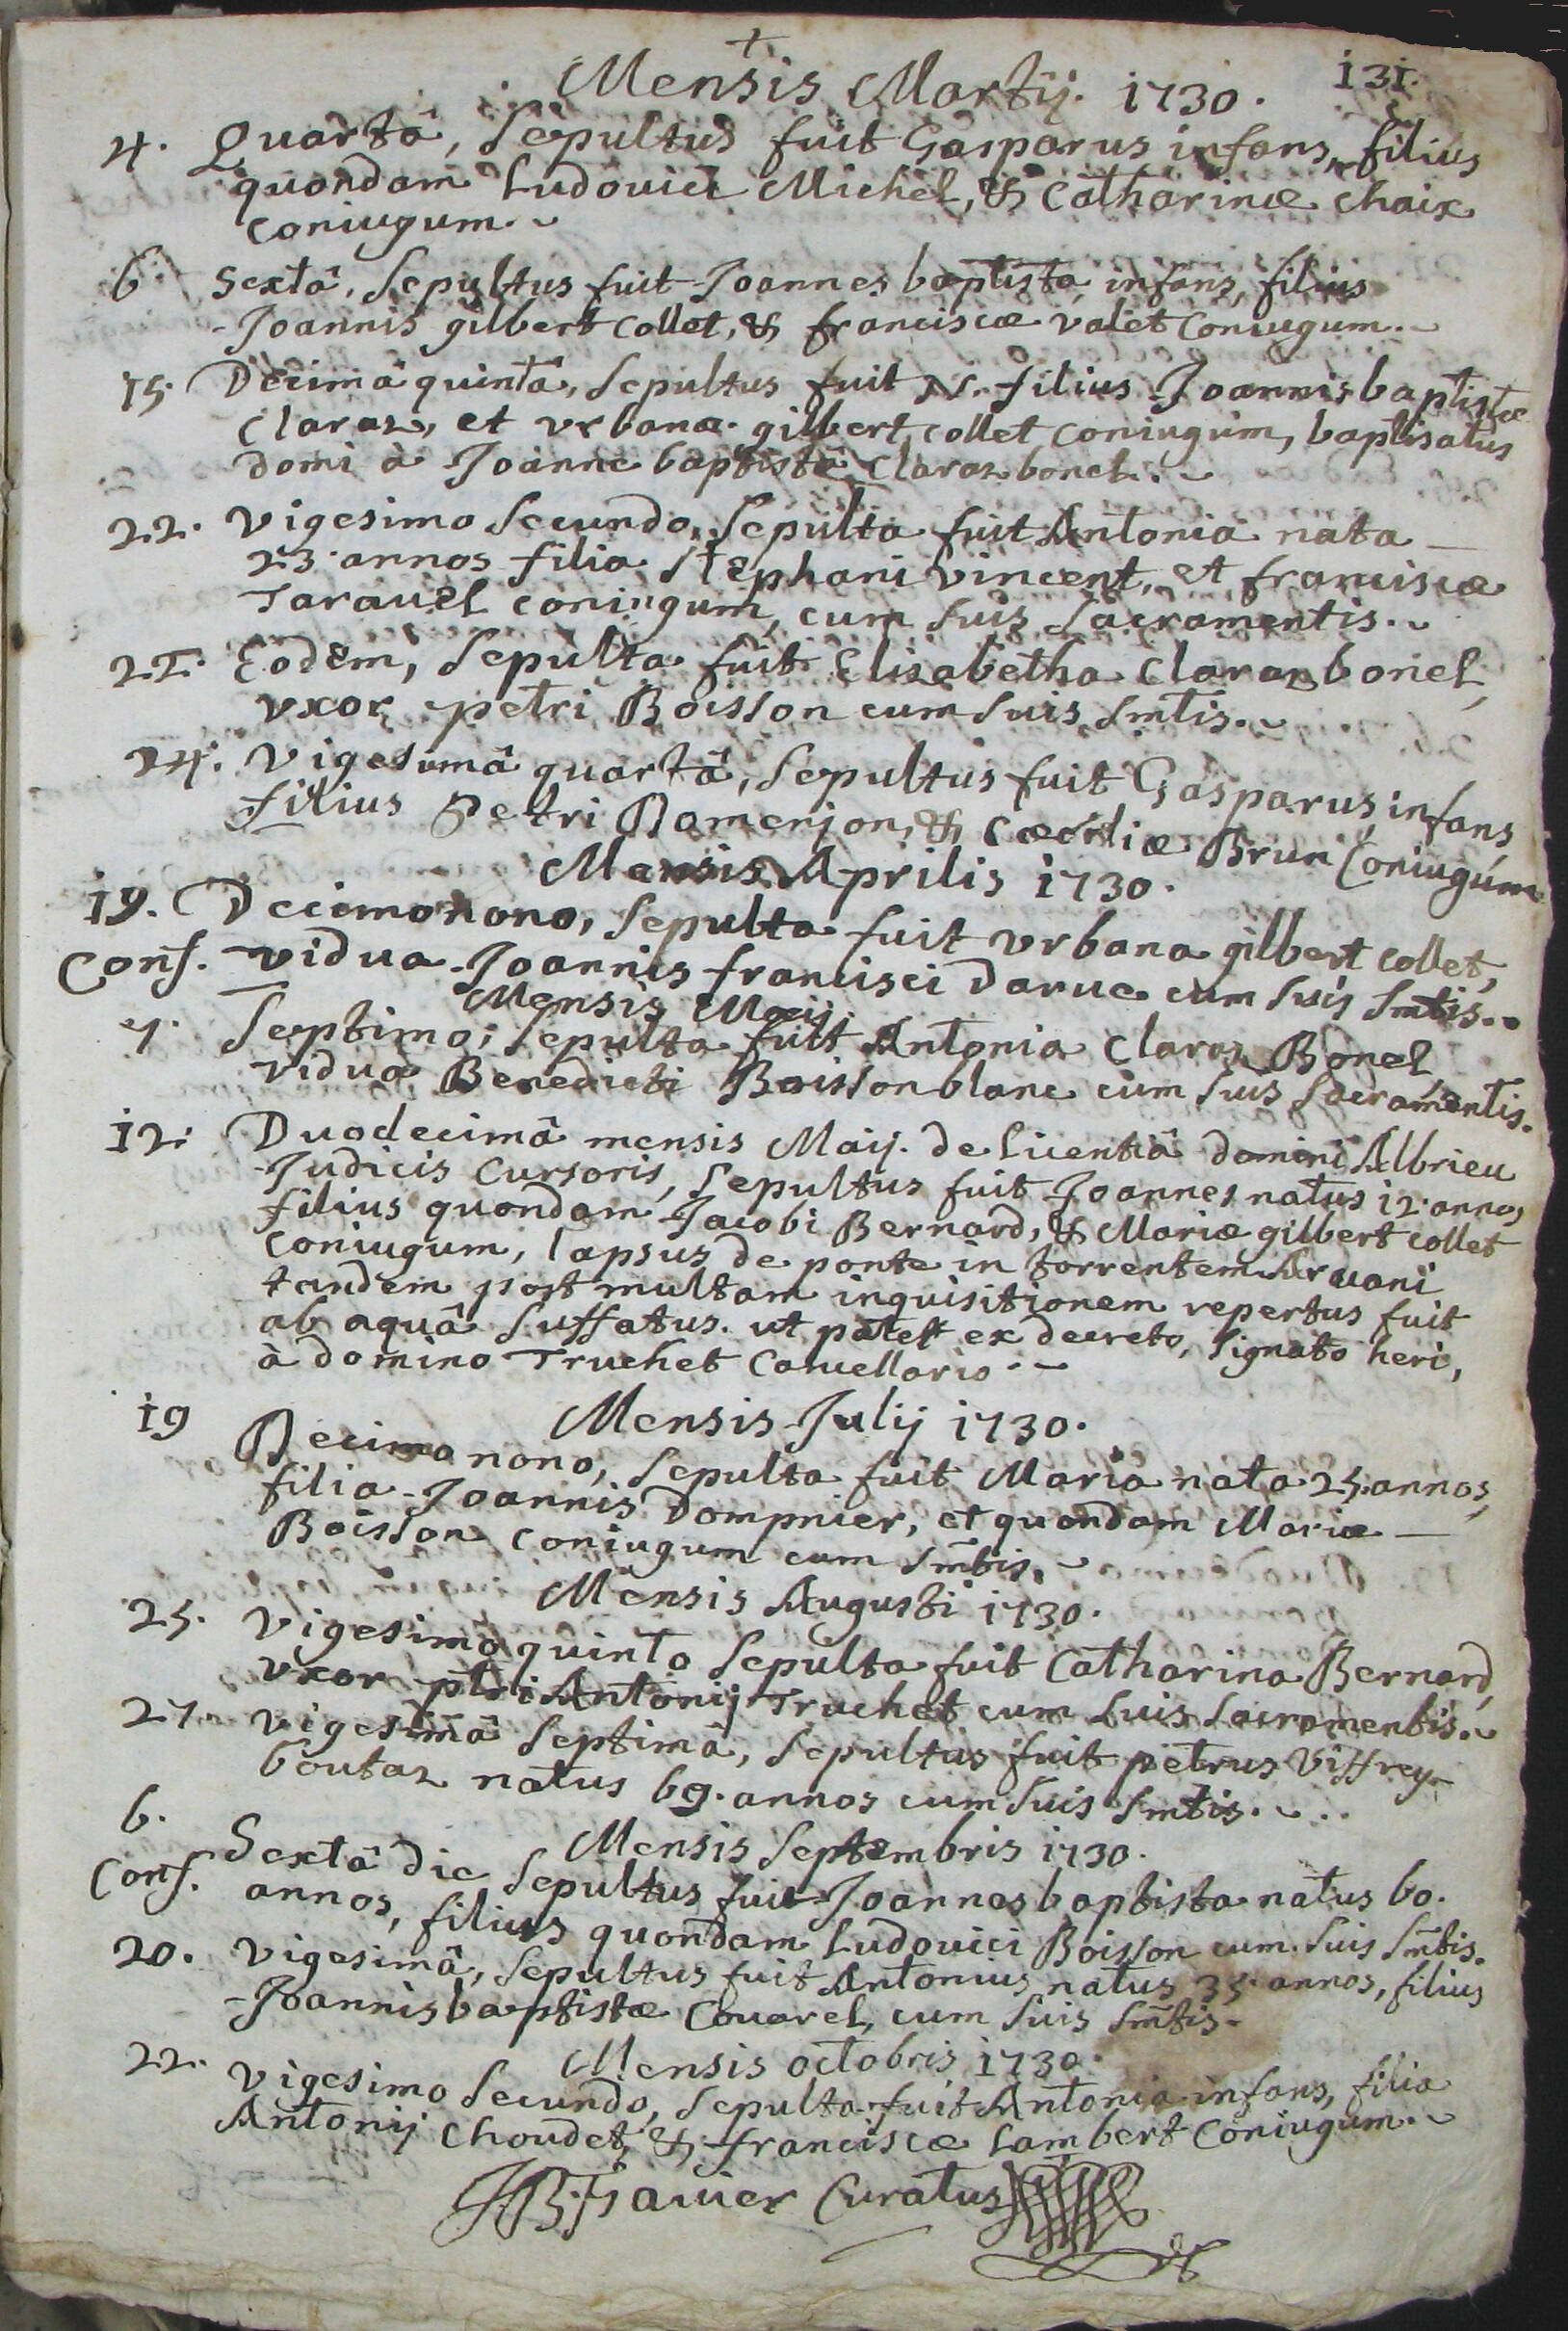 +
Mensis Martij. 1730. 131.
4. Quartâ, Sepultus fuit Gasparus infans, filius
quondam Ludovici Michel, & Catharinæ Chaix
Coniugum.
6. Sextâ, Sepultus fuit Joannes baptista infans, filius
Joannis gilbert collet, & franciscæ valet Coniugum.
15. Decimâ quintâ, Sepultus fuit N. filius Joannis baptistæ
Claraz, et vrbanæ gilbert collet coniugum, baptisatus
domi à Joanne baptistâ Claraz bonel.
22. vigesimo Secundo, Sepulta fuit Antonia nata
23. annos filia Stephani vincent, et franciscæ
Taravel coniugum, cum suis Sacramentis.
22. Eodem, Sepulta fuit Elisabetha Claraz bonel,
vxor petri Boisson cum suis Smtis.
24. vigesimâ quartâ, Sepultus fuit Gasparus infans
filius Petri Damenjon, & Cæciliæ Brun Coniugum
Mensis Aprilis 1730.
19. Decimonono, Sepulta fuit vrbana gilbert collet,
Conf. vidua Joannis francisci Darve cum suis Smtis.
Mensis Maij
7. Septimo, Sepulta fuit Antonia Claraz Bonel
vidua Benedicti Boisson blanc cum suis Sacramentis.
12. Duodecimâ mensis Maij. de licentiâ domini Albrieu
Judicis Cursoris, Sepultus fuit Joannes natus 12. annos
filius quondam Jacobi Bernard, & Mariæ gilbert collet
Coniugum, lapsus de ponte in torrentem Arvani
tandem post multam inquisitionem repertus fuit
ab aquâ Suffatus. ut patet ex decreto, Signato heri,
à domino Truchet Cancellario.
Mensis Julij 1730.
19 Decimo nono, Sepulta fuit Maria nata 25. annos,
filia Joannis Dompnier, et quondam Mariæ
Boisson Coniugum cum Smtis.
Mensis Augusti 1730.
25. vigesimo quinto Sepulta fuit Catharina Bernard,
vxor ptri Antonij Truchet cum suis Sacramentis.
27. vigesimâ Septimâ, Sepultus fuit petrus Viffrey
boutaz natus 69. annos cum suis Smtis.
Mensis Septembris 1730.
6. Sextâ die Sepultus fuit Joannes baptista natus 60.
Conf. annos, filius quondam Ludovici Boisson cum suis Smtis.
20. vigesimâ, Sepultus fuit Antonius natus 35. annos, filius
Joannis baptistæ Covarel, cum suis Smtis.
Mensis octobris 1730.
22. vigesimo Secundo, Sepulta fuit Antonia infans, filia
Antonij Choudet, & franciscæ Lambert Coniugum.
Curatus